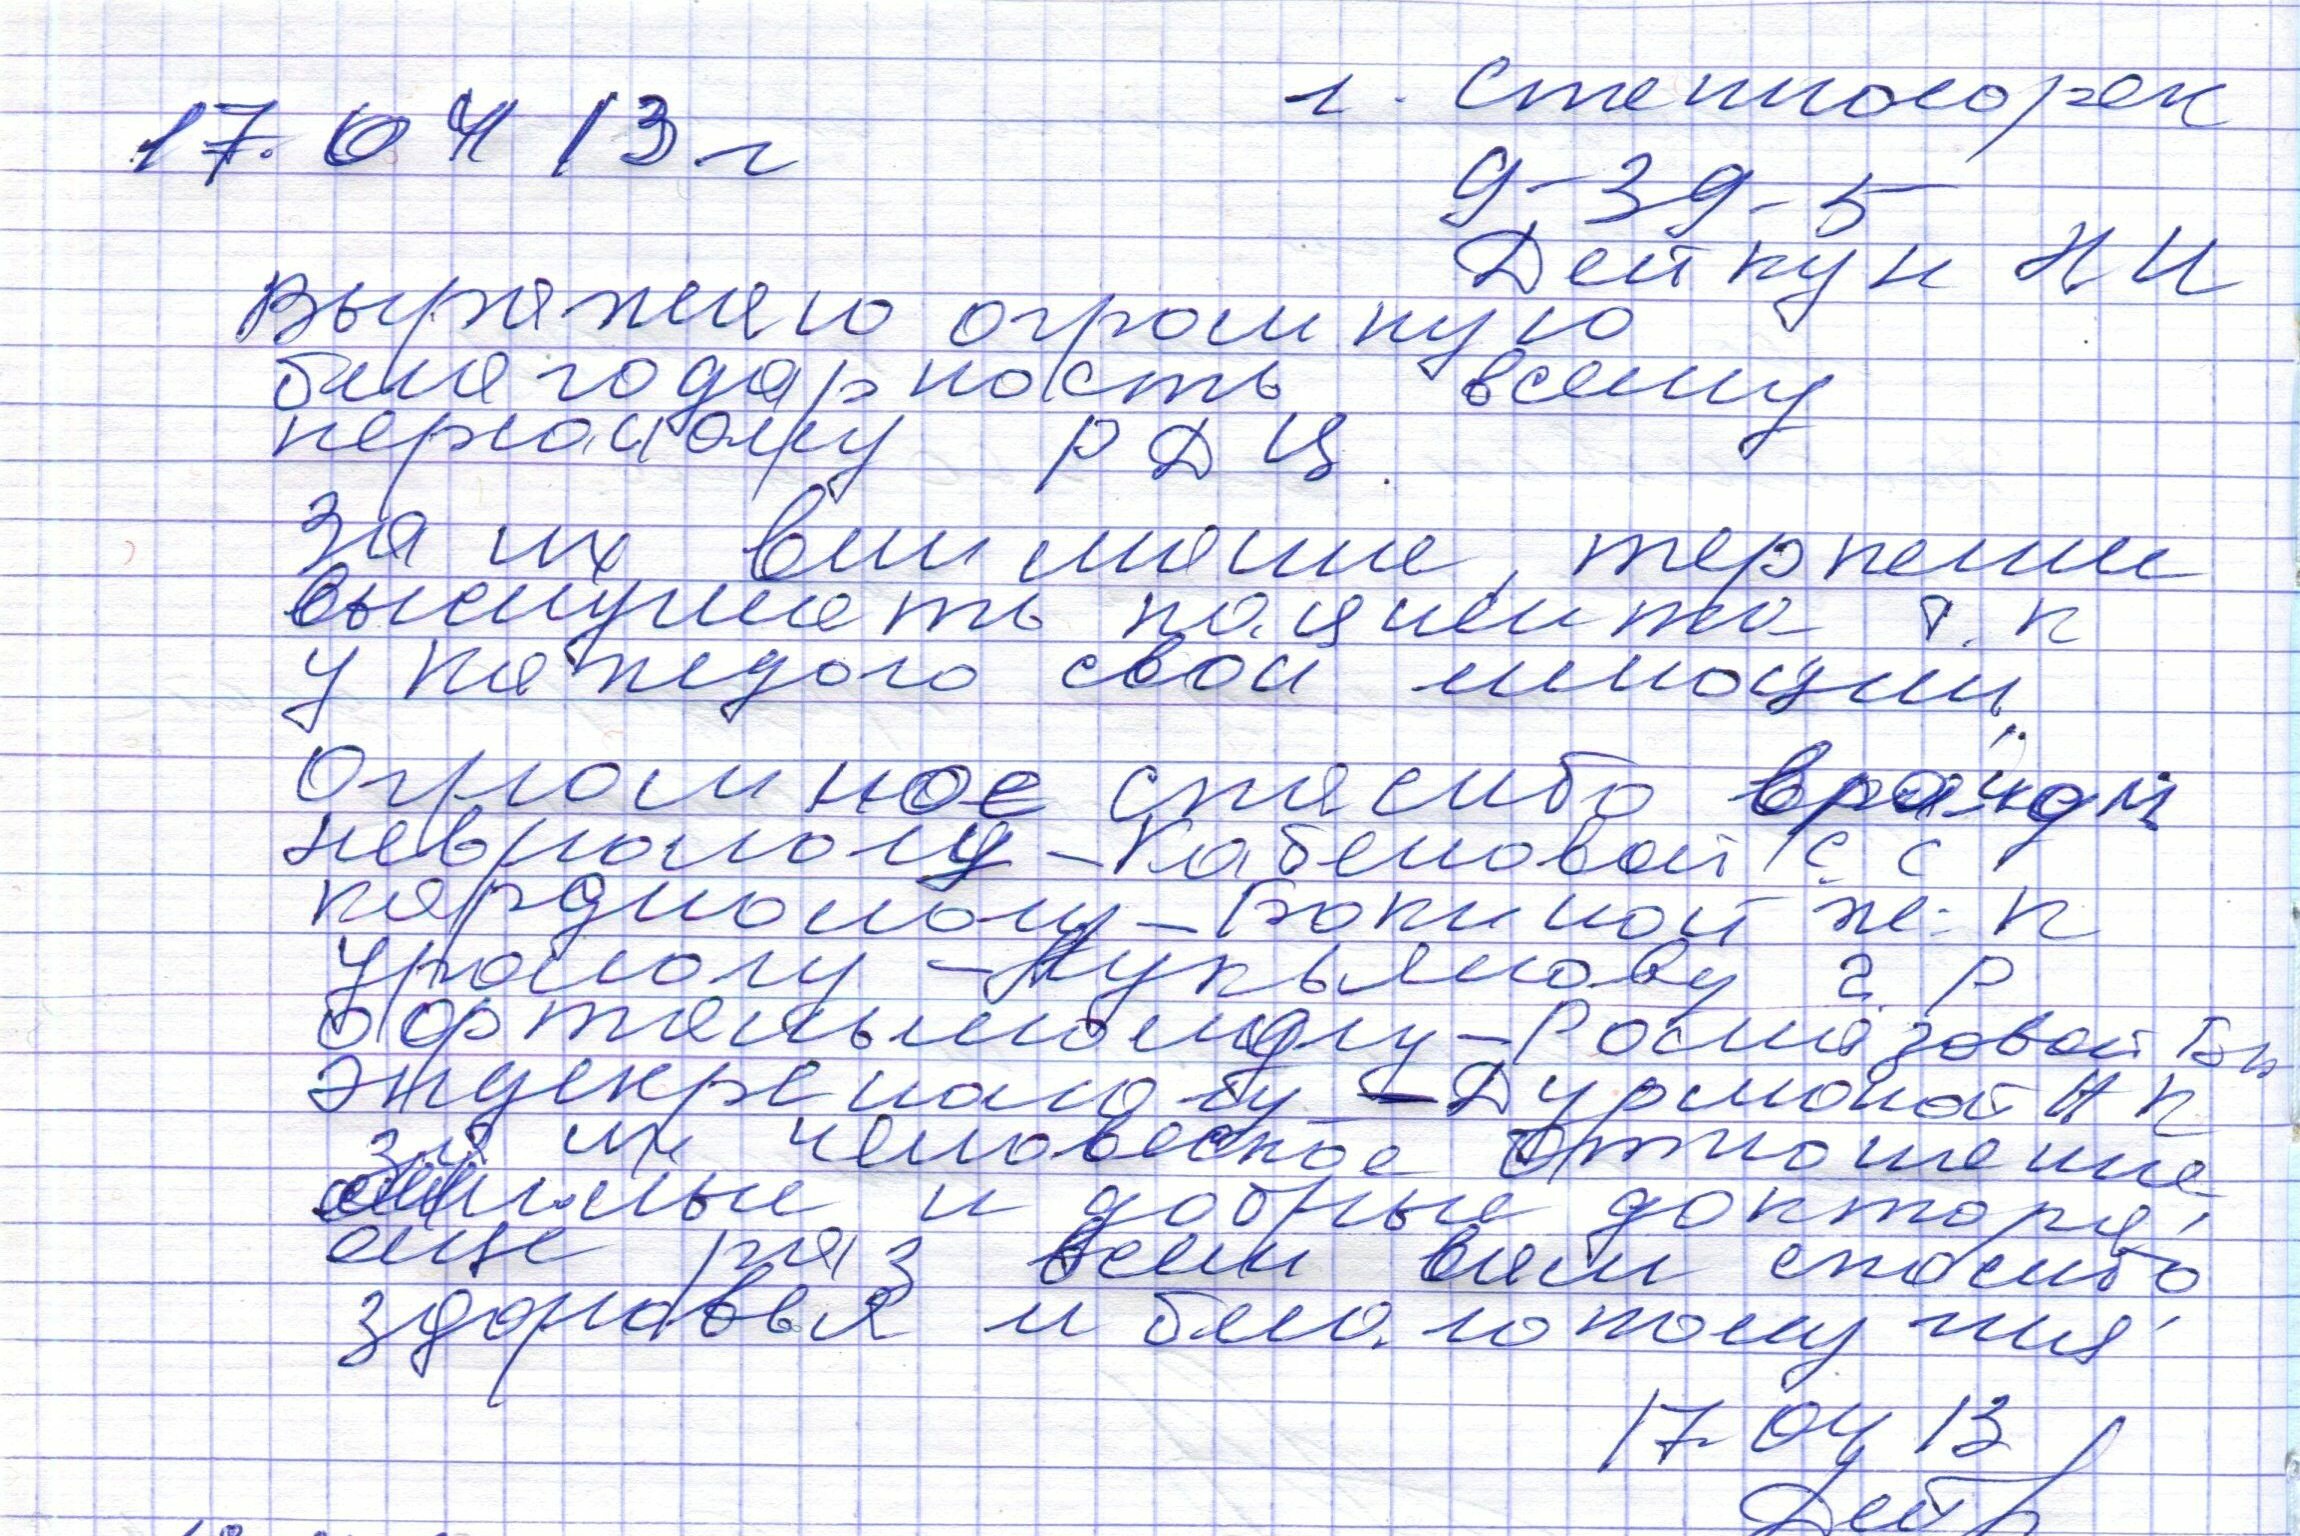 17.04 13 г
г. Степногорск
9-39-5
Дейкун Н И
Выражаю огромную
благодарность всему
персоналу РДЦ.
За их внимание, терпении
выслушать пациента т.к
у каждого свои эмоции.
Огромное спасибо врачам
неврологу - Кабеновой С. С
кардиологу - Бокиной Ж. К
урологу - Лукьянову Г. Р
офртальмологу - Рослязовой Бн
эндекренологу - Дурмоной Н К
за их человеское отношение
милые и добрые доктора,
еще раз всем вам спосибо
здоровья и благотолучия
17.04 13